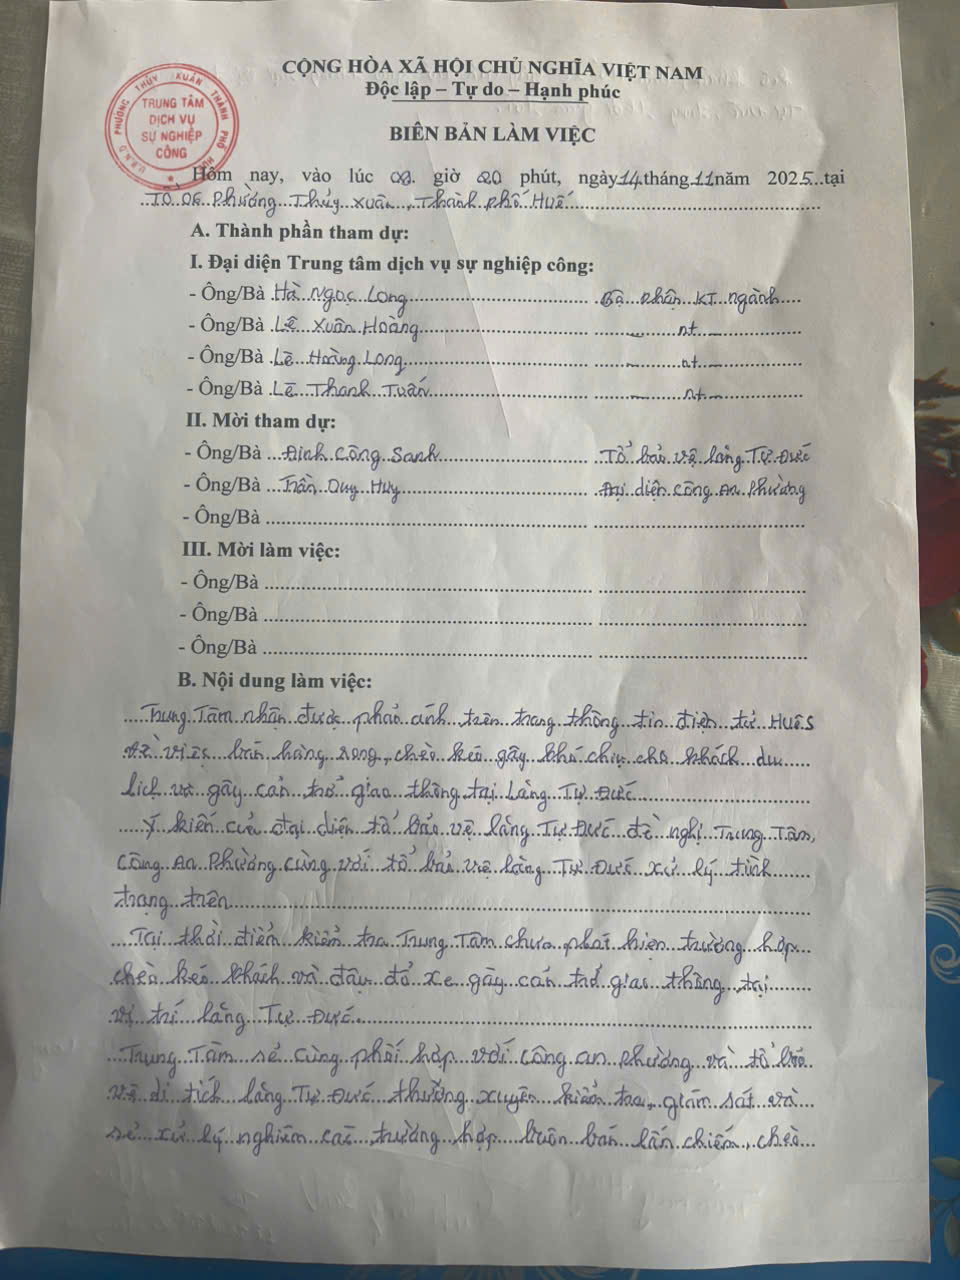 CỘNG HÒA XÃ HỘI CHỦ NGHĨA VIỆT NAM
Độc lập – Tự do – Hạnh phúc
U.B.N.D PHƯỜNG THỦY XUÂN THÀNH PHỐ HUẾ
TRUNG TÂM
DỊCH VỤ
SỰ NGHIỆP
CÔNG
BIÊN BẢN LÀM VIỆC
Hôm nay, vào lúc 08 giờ 20 phút, ngày 14 tháng 11 năm 2025 tại
Tổ 06 Phường Thủy Xuân, Thành phố Huế
A. Thành phần tham dự:
I. Đại diện Trung tâm dịch vụ sự nghiệp công:
- Ông/Bà Hà Ngọc Long Bộ phận KT ngành
- Ông/Bà Lê Xuân Hoàng nt
- Ông/Bà Lê Hoàng Long nt
- Ông/Bà Lê Thanh Tuấn nt
II. Mời tham dự:
- Ông/Bà Đinh Công Sanh Tổ bảo vệ lăng Tự Đức
- Ông/Bà Trần Duy Huy Đại diện Công An Phường
- Ông/Bà
III. Mời làm việc:
- Ông/Bà
- Ông/Bà
- Ông/Bà
B. Nội dung làm việc:
Trung Tâm nhận được phản ánh trên trang thông tin điện tử HueS
về việc bán hàng rong, chèo kéo gây khó chịu cho khách du
lịch và gây cản trở giao thông tại Lăng Tự Đức
Ý kiến của đại diện tổ bảo vệ lăng Tự Đức đề nghị Trung Tâm,
Công An Phường cùng với tổ bảo vệ lăng Tự Đức xử lý tình
trạng trên
Tại thời điểm kiểm tra Trung Tâm chưa phát hiện trường hợp
chèo kéo khách và đậu đỗ xe gây cản trở giao thông tại
vị trí lăng Tự Đức.
Trung Tâm sẽ cùng phối hợp với công an phường và tổ bảo
vệ di tích lăng Tự Đức thường xuyên kiểm tra, giám sát và
sẽ xử lý nghiêm các trường hợp buôn bán lấn chiếm, chèo